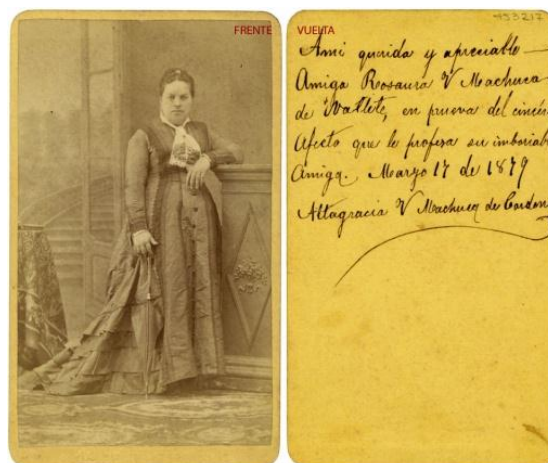 FRENTE
VUELTA
453217
Ami querida y apreciable
Amiga Rosaura V Machuca
de Vallete, en prueva del cincer
Afecto que le profesa su imbariabl
Amiga. Marzo 17 de 1879
Altagracia V Machuca de Cardon